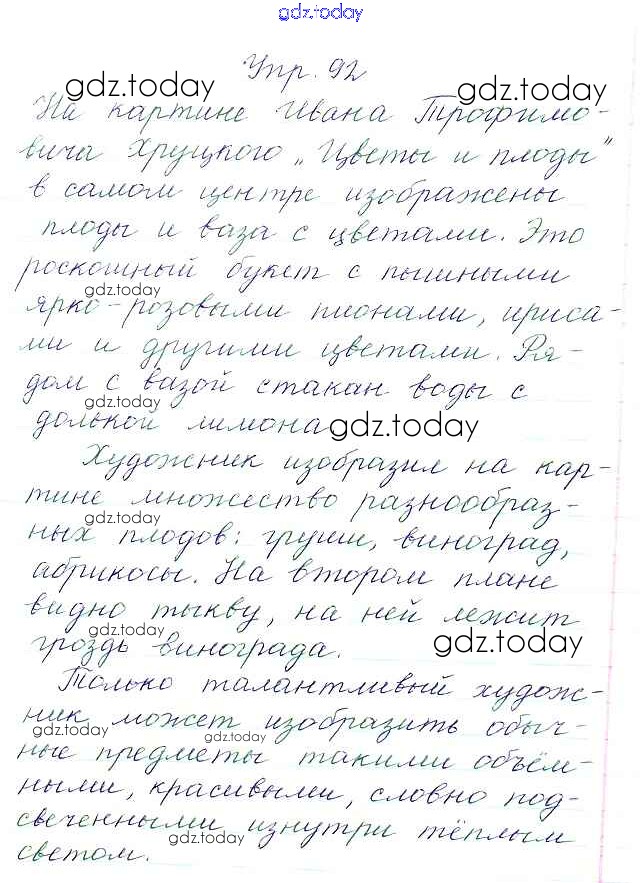 gdz.today
Упр. 92
gdz.today gdz.today
На картине Ивана Трофимо-
вича Хруцкого „Цветы и плоды"
в самом центре изображены
плоды и ваза с цветами. Это
роскошный букет с пышными
gdz.today
ярко-розовыми пионами, ириса-
ми и другими цветами. Ря-
дом с вазой стакан воды с
gdz.today
долькой лимона
gdz.today
Художник изобразил на кар-
тине множество разнообраз-
gdz.today
ных плодов: груши, виноград,
абрикосы. На втором плане
видно тыкву, на ней лежит
gdz.today
гроздь винограда.
gdz.today
Только талантливый худож-
ник может изобразить обыч-
gdz.today gdz.today
ные предметы такими объём-
ными, красивыми, словно под-
свеченными изнутри тёплым
gdz.today
светом.